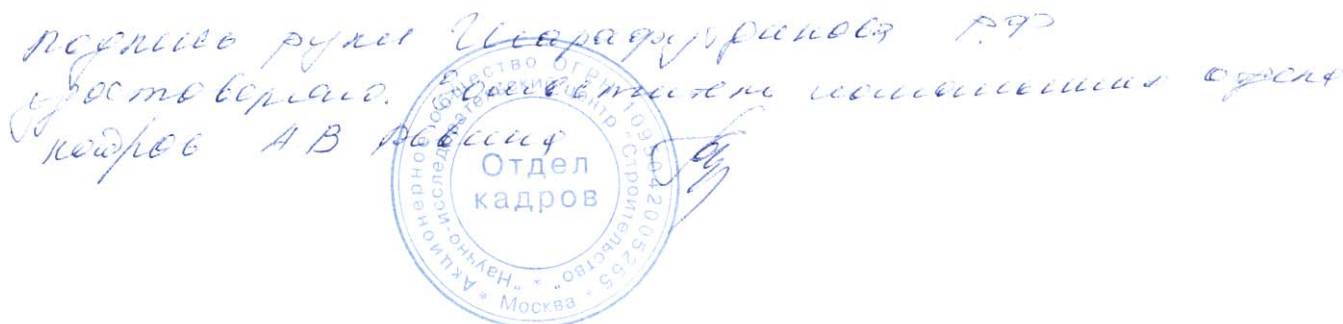 подпись руки Шарафутдинова Р.Ф
удостоверяю. Заместитель начальника отдела
кадров А.В
Акционерное общество ОГРН 1095042005255
"Научно-исследовательский центр "Строительство"
Отдел
кадров
Москва